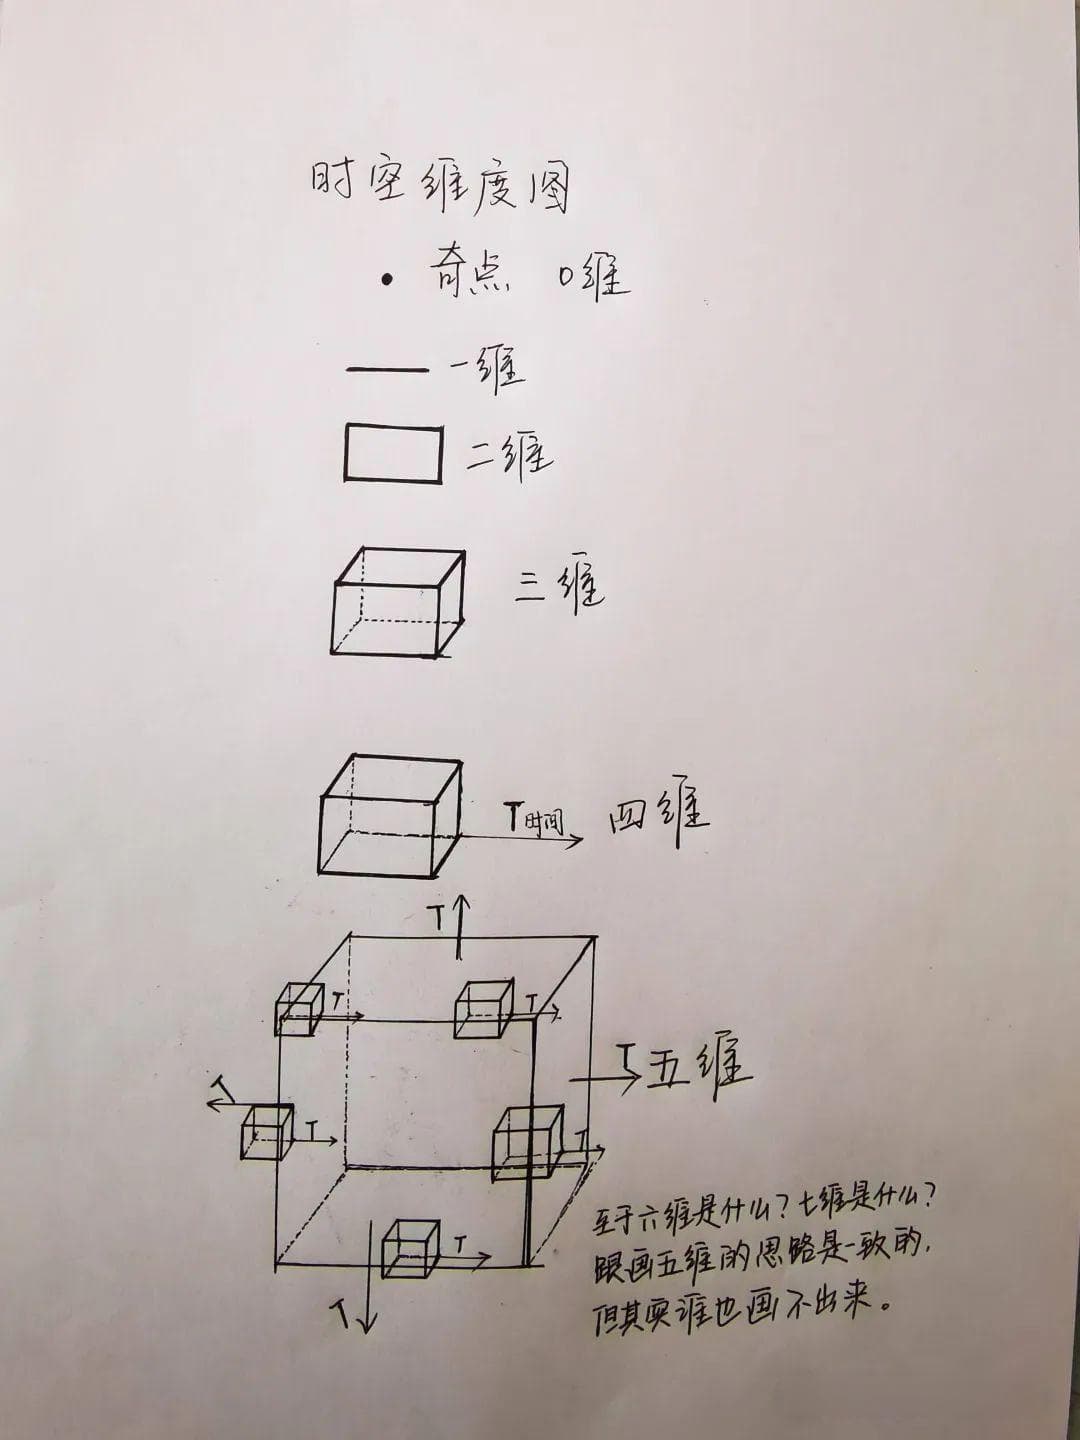 时空维度图
奇点 0维
一维
二维
三维
T时间 四维
T
T
T
T
T 五维
T
T
T
T
T
至于六维是什么？七维是什么？
跟画五维的思路是一致的，
但其实谁也画不出来。